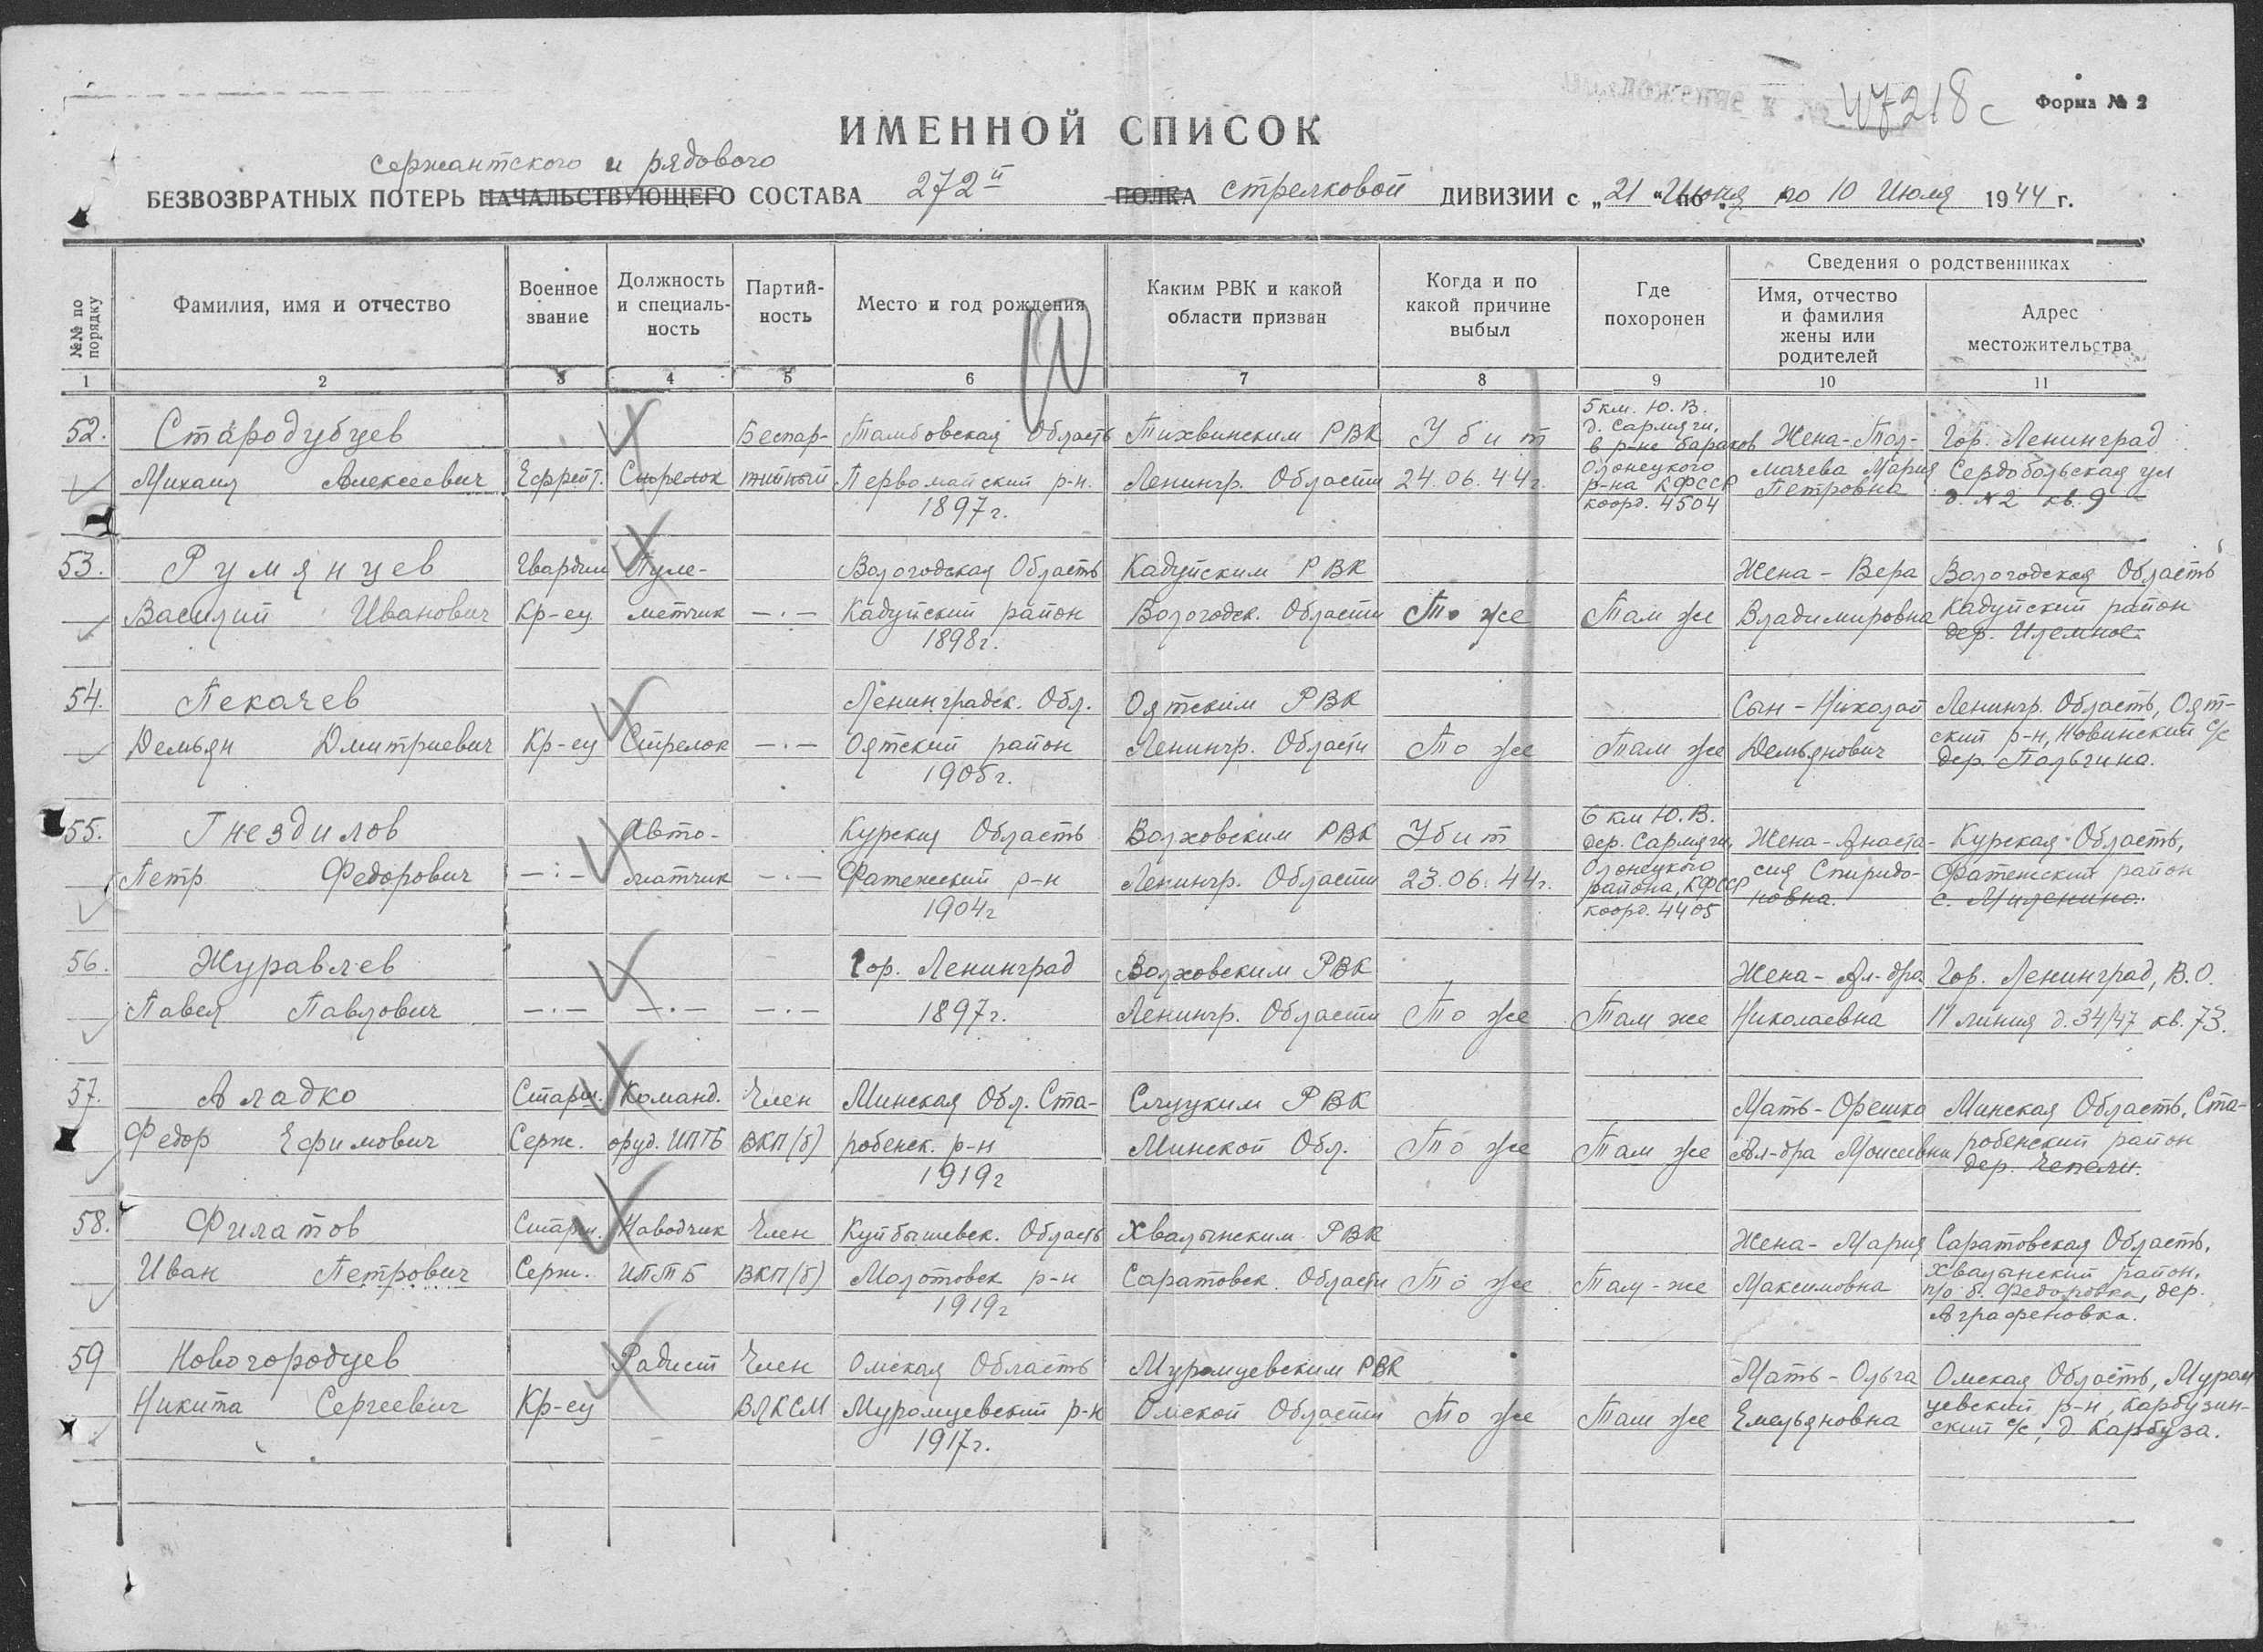 Приложение к № 47218с
Форма № 2
ИМЕННОЙ СПИСОК
сержантского и рядового
БЕЗВОЗВРАТНЫХ ПОТЕРЬ НАЧАЛЬСТВУЮЩЕГО СОСТАВА 272й ПОЛКА стрелковой ДИВИЗИИ с „21 “ Июня по 10 Июля 1944 г.
№№ по порядку
Фамилия, имя и отчество
Военное звание
Должность и специаль-ность
Партий-ность
Место и год рождения
Каким РВК и какой области призван
Когда и по какой причине выбыл
Где похоронен
Сведения о родственниках
Имя, отчество и фамилия жены или родителей
Адрес местожительства
1 2 3 4 5 6 7 8 9 10 11
5 км. Ю.В.
52. Стародубцев Беспар- Тамбовская Область Тихвинским РВК Убит д. Сармяги, в р-не бараков Жена-Тол- Гор. Ленинград
Михаил Алексеевич Ефрейт. Стрелок тийный Первомайский р-н. Ленингр. Области 24.06.44г. Олонецкого р-на КФССР мачева Мария Сердобольская ул
1897г. коорд. 4504 Петровна д. №2 кв. 9
53. Румянцев Гвардии Пуле- Вологодская Область Кадуйским РВК Жена - Вера Вологодская Область
Василий Иванович Кр-ец метчик —·— Кадуйский район Вологодск. Области То же Там же Владимировна Кадуйский район
1898г. дер. Илемное
54. Пекачев Ленинградск. Обл. Оятским РВК Сын - Николай Ленингр. Область, Оят-
Демьян Дмитриевич Кр-ец Стрелок —·— Оятский район Ленингр. Области То же Там же Демьянович ский р-н, Новинский с/с
1905г. дер. Пальгина.
6 км Ю.В.
55. Гнездилов Авто- Курская Область Волховским РВК Убит дер. Сармяги, Жена-Анаста- Курская Область,
Петр Федорович —·— матчик —·— Фатежский р-н Ленингр. Области 23.06.44г. Олонецкого района, КФССР сия Спиридо- Фатежский район
1904г коорд. 4405 новна. с. Миленино.
56. Журавлев Гор. Ленинград Волховским РВК Жена - Ал-дра Гор. Ленинград, В.О.
Павел Павлович —·— —·— —·— 1897г. Ленингр. Области То же Там же Николаевна 11 линия д. 34/47 кв. 73.
57. Аладко Старш. Команд. Член Минская Обл. Ста- Слуцким РВК Мать-Орешко Минская Область, Ста-
Федор Ефимович Серж. оруд. ИПТБ ВКП(б) робенск. р-н Минской Обл. То же Там же Ал-дра Моисеевна робенский район
1919г дер. Чепели.
58. Филатов Старш. Наводчик Член Куйбышевск. Область Хвалынским РВК Жена - Мария Саратовская Область,
Иван Петрович Серж. ИПТБ ВКП(б) Молотовск р-н Саратовск. Области То же Там-же Максимовна Хвалынский район,
1919г п/о б. Федоровка, дер.
Аграфеновка.
59 Новогородцев Радист Член Омская Область Муромцевским РВК Мать - Ольга Омская Область, Муром
Никита Сергеевич Кр-ец ВЛКСМ Муромцевский р-н Омской Области То же Там же Емельяновна цевский р-н, Карбузин-
1917г. ский с/с, д. Карбуза.